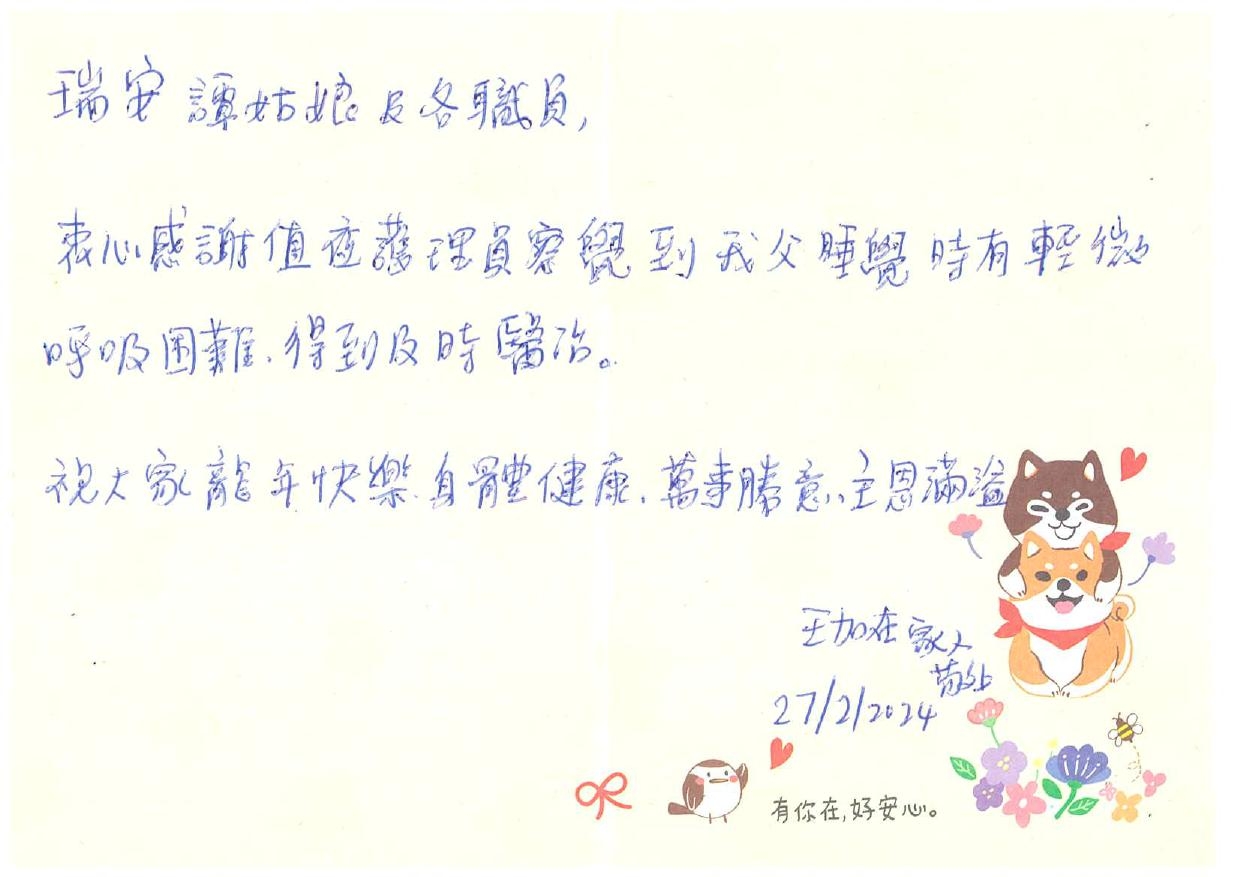 瑞安 譚姑娘及各職員,
衷心感謝值夜護理員察覺到我父睡覺時有輕微
呼吸困難.得到及時醫治。
祝大家龍年快樂.身體健康.萬事勝意.主恩滿溢
王加在家人
敬上
27/2/2024
有你在,好安心。